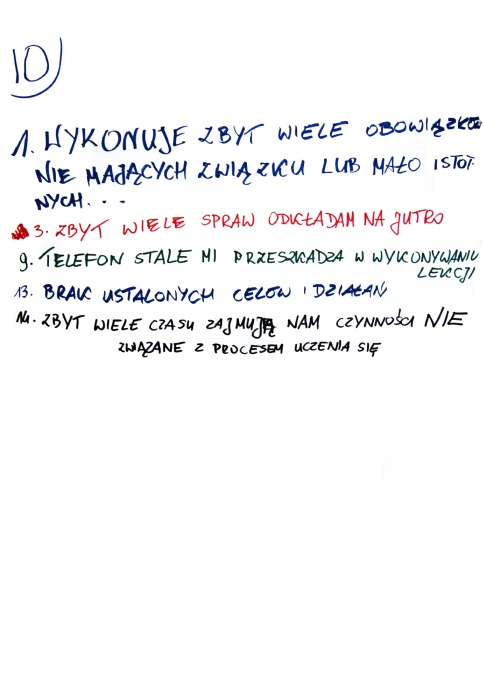 10
1. WYKONUJE ZBYT WIELE OBOWIĄZKÓW
NIE MAJĄCYCH ZWIĄZKU LUB MAŁO ISTOT
NYCH...
3. ZBYT WIELE SPRAW ODKŁADAM NA JUTRO
9. TELEFON STALE MI PRZESZKADZA W WYKONYWANIU
LEKCJI
13. BRAK USTALONYCH CELÓW I DZIAŁAŃ
14. ZBYT WIELE CZASU ZAJMUJĄ NAM CZYNNOŚCI NIE
ZWIĄZANE Z PROCESEM UCZENIA SIĘ